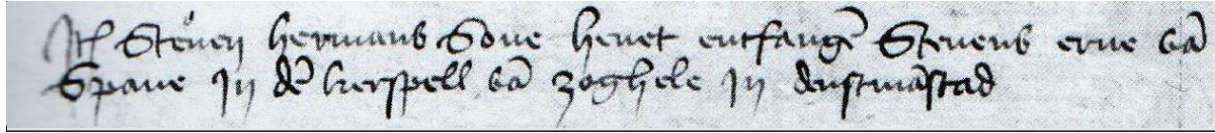 Itē Steven hermans Sone hevet entfangē Stevens erve vā
Spane in dē kerspell vā zoghele in denstmāstad